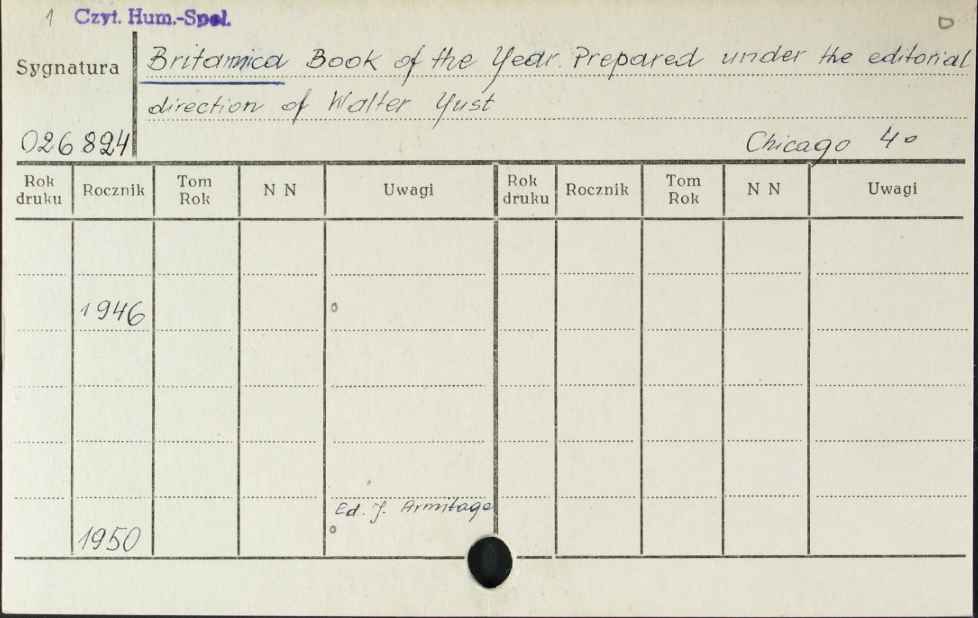 1 Czyt. Hum.-Społ. D
Sygnatura Britannica Book of the Year. Prepared under the editorial
direction of Walter Yust
026 824 Chicago 4°
Rok druku Rocznik Tom Rok N N Uwagi Rok druku Rocznik Tom Rok N N Uwagi
1946 °
Ed. J. Armitage
1950 °